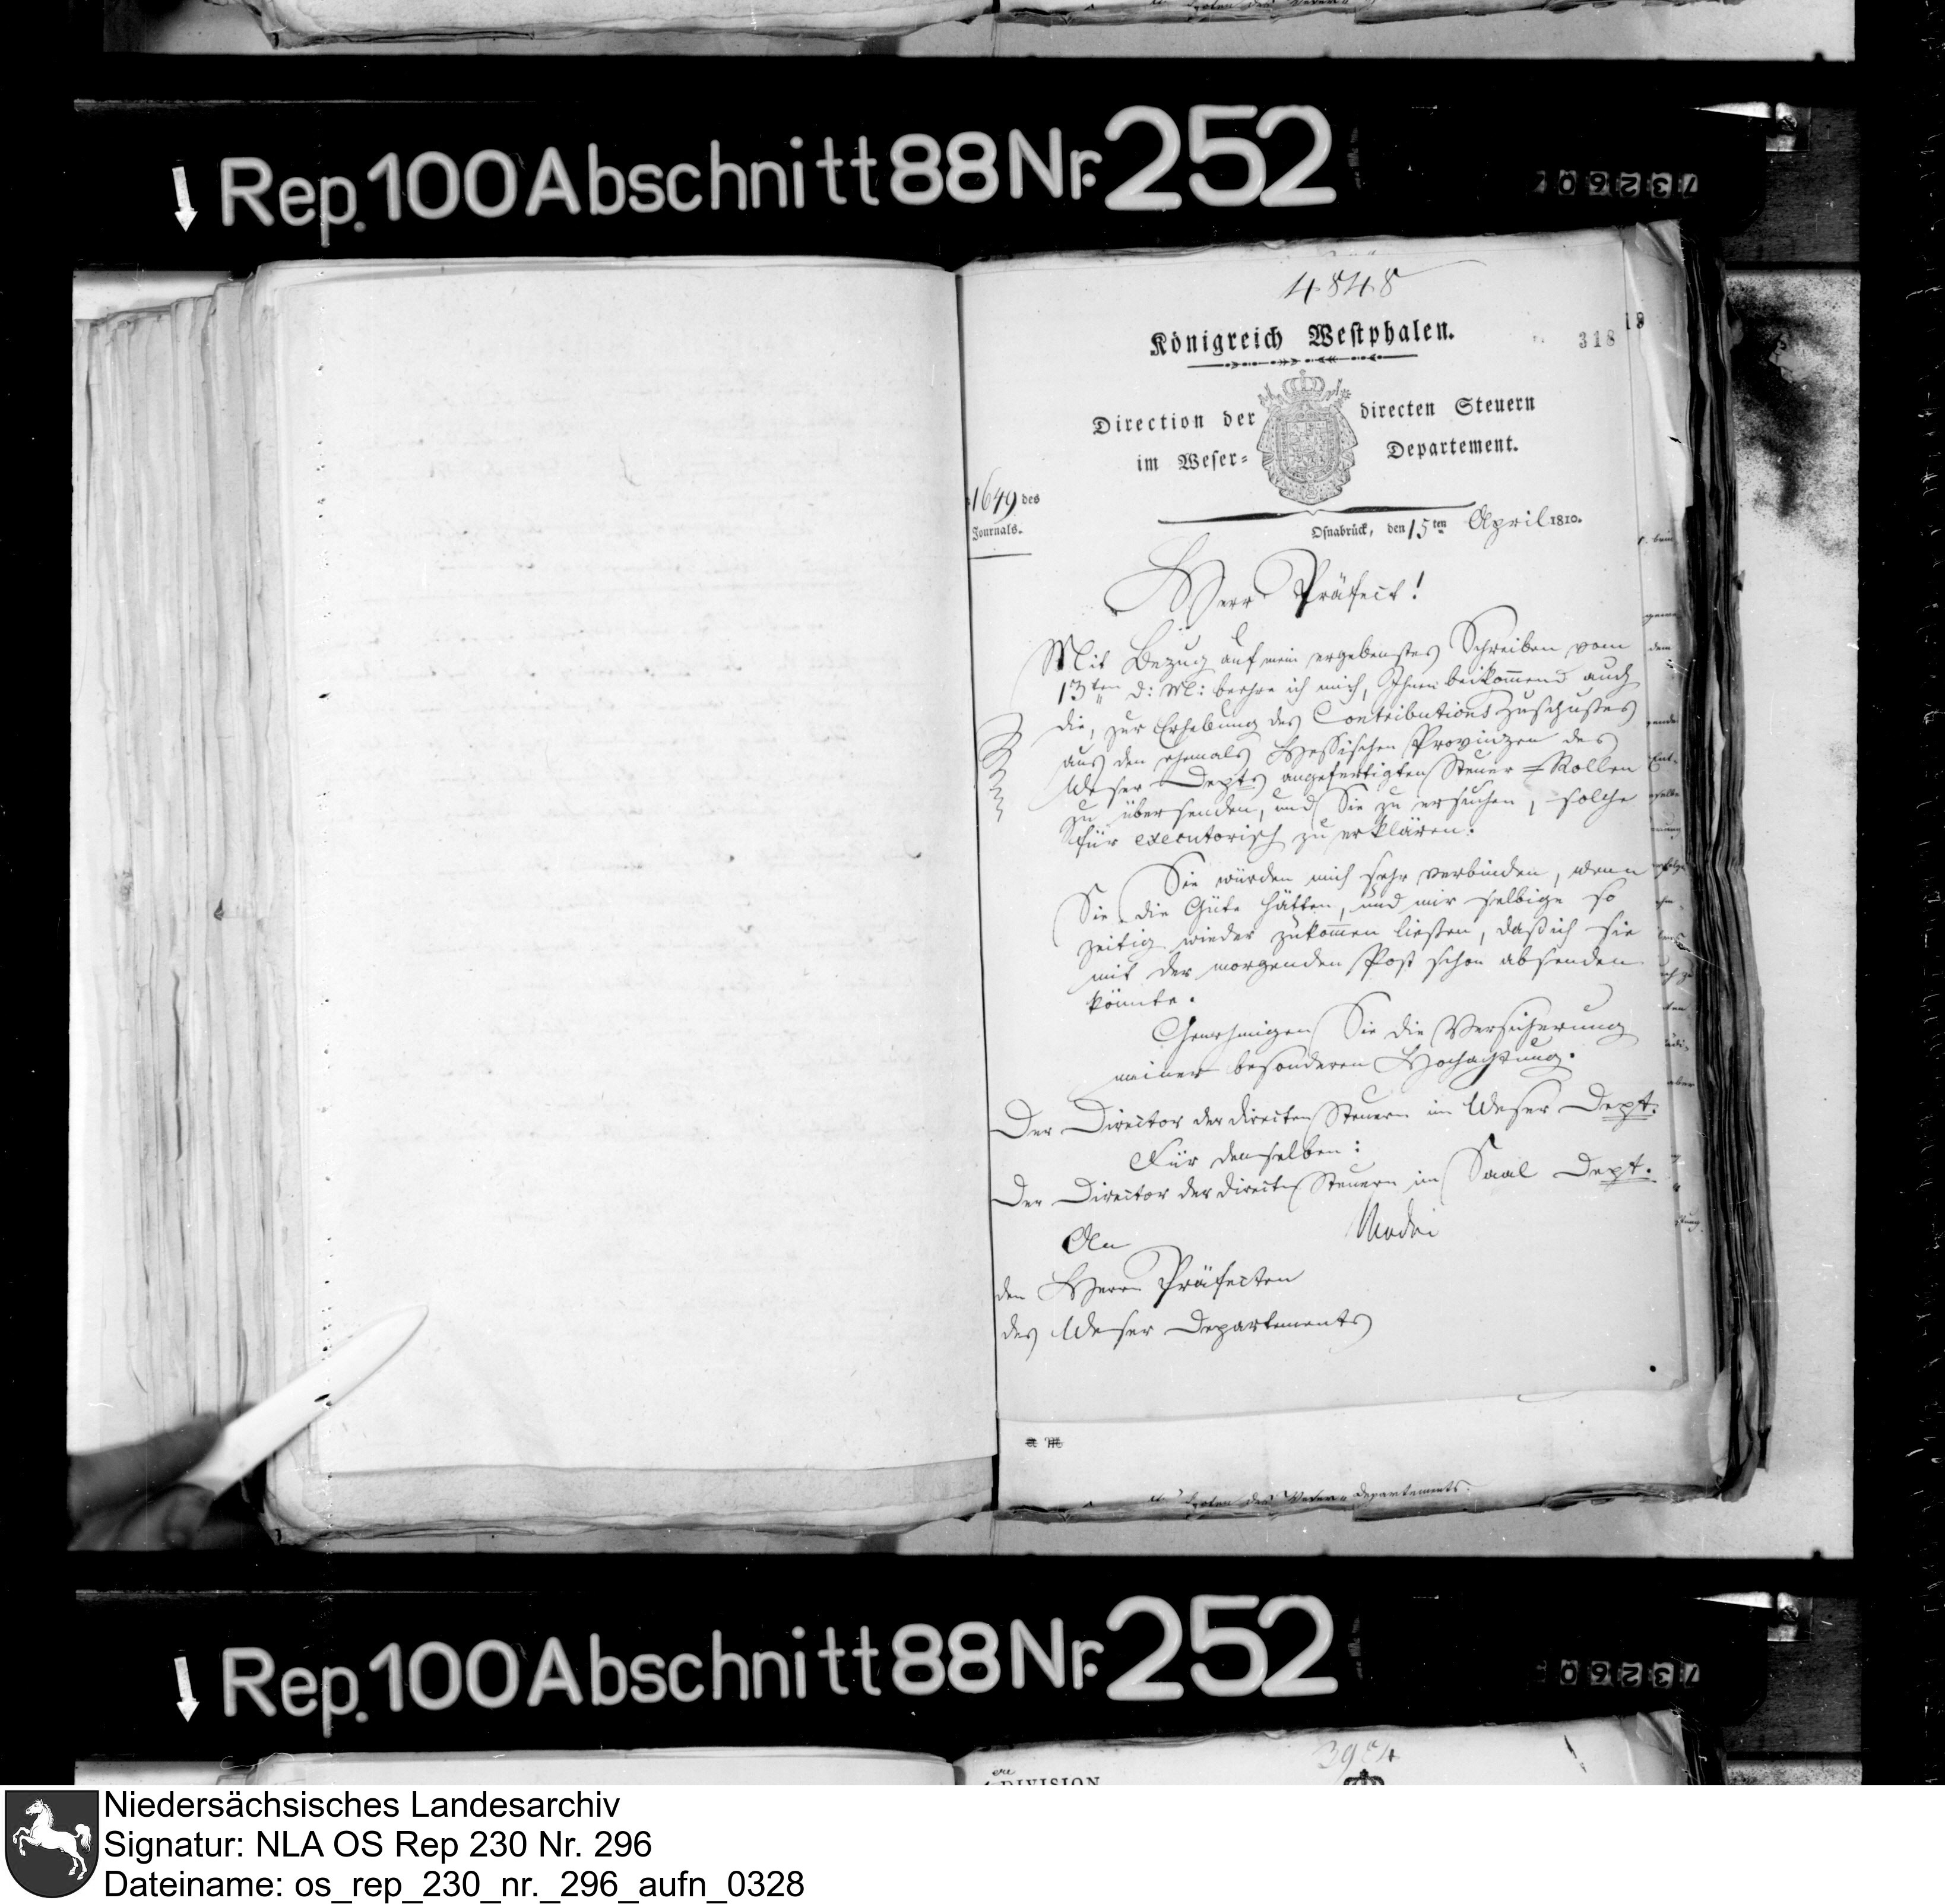 Rep. 100 Abschnitt 88 Nr. 252
4848
Königreich Westphalen.
318
Direction der directen Steuern
im Weser- Departement.
1649 des
Journals.
Osnabrück, den 15ten April 1810.
Herr Präfect!
Mit Bezug auf mein ergebenstes Schreiben vom
13ten d: M: beehre ich mich, Ihnen beikommend auch
die, zur Erhebung des Contributions Zuschußes
aus den ehemals Hessischen Provinzen des
Weser Depts angefertigten Steuer=Rollen
zu übersenden, und Sie zu ersuchen, solche
für executorisch zu erklären.
Sie würden mich sehr verbinden, wenn
Sie die Güte hätten, und mir selbige so
zeitig wieder zukommen ließen, daß ich sie
mit der morgenden Post schon absenden
könnte.
Genehmigen Sie die Versicherung
meiner besonderen Hochachtung.
Der Director der directen Steuern im Weser Dept.
Für denselben:
Der Director der directen Steuern im Saal Dept.
An
den Herrn Präfecten
des Weser Departements
Rep. 100 Abschnitt 88 Nr. 252
DIVISION
Niedersächsisches Landesarchiv
Signatur: NLA OS Rep 230 Nr. 296
Dateiname: os_rep_230_nr._296_aufn_0328